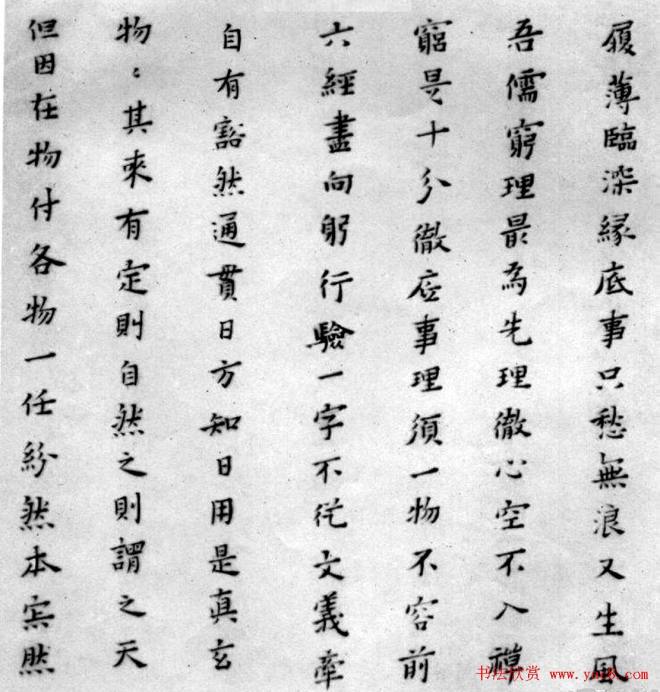 履薄臨深緣底事只愁無浪又生風
吾儒窮理最為先理徹心空不入禪
窮是十分徹底事理須一物不容前
六經盡向躬行驗一字不從文義牽
自有豁然通貫日方知日用是真玄
物〻其來有定則自然之則謂之天
但因在物付各物一任紛然本寂然
书法欣赏 www.yac8.com